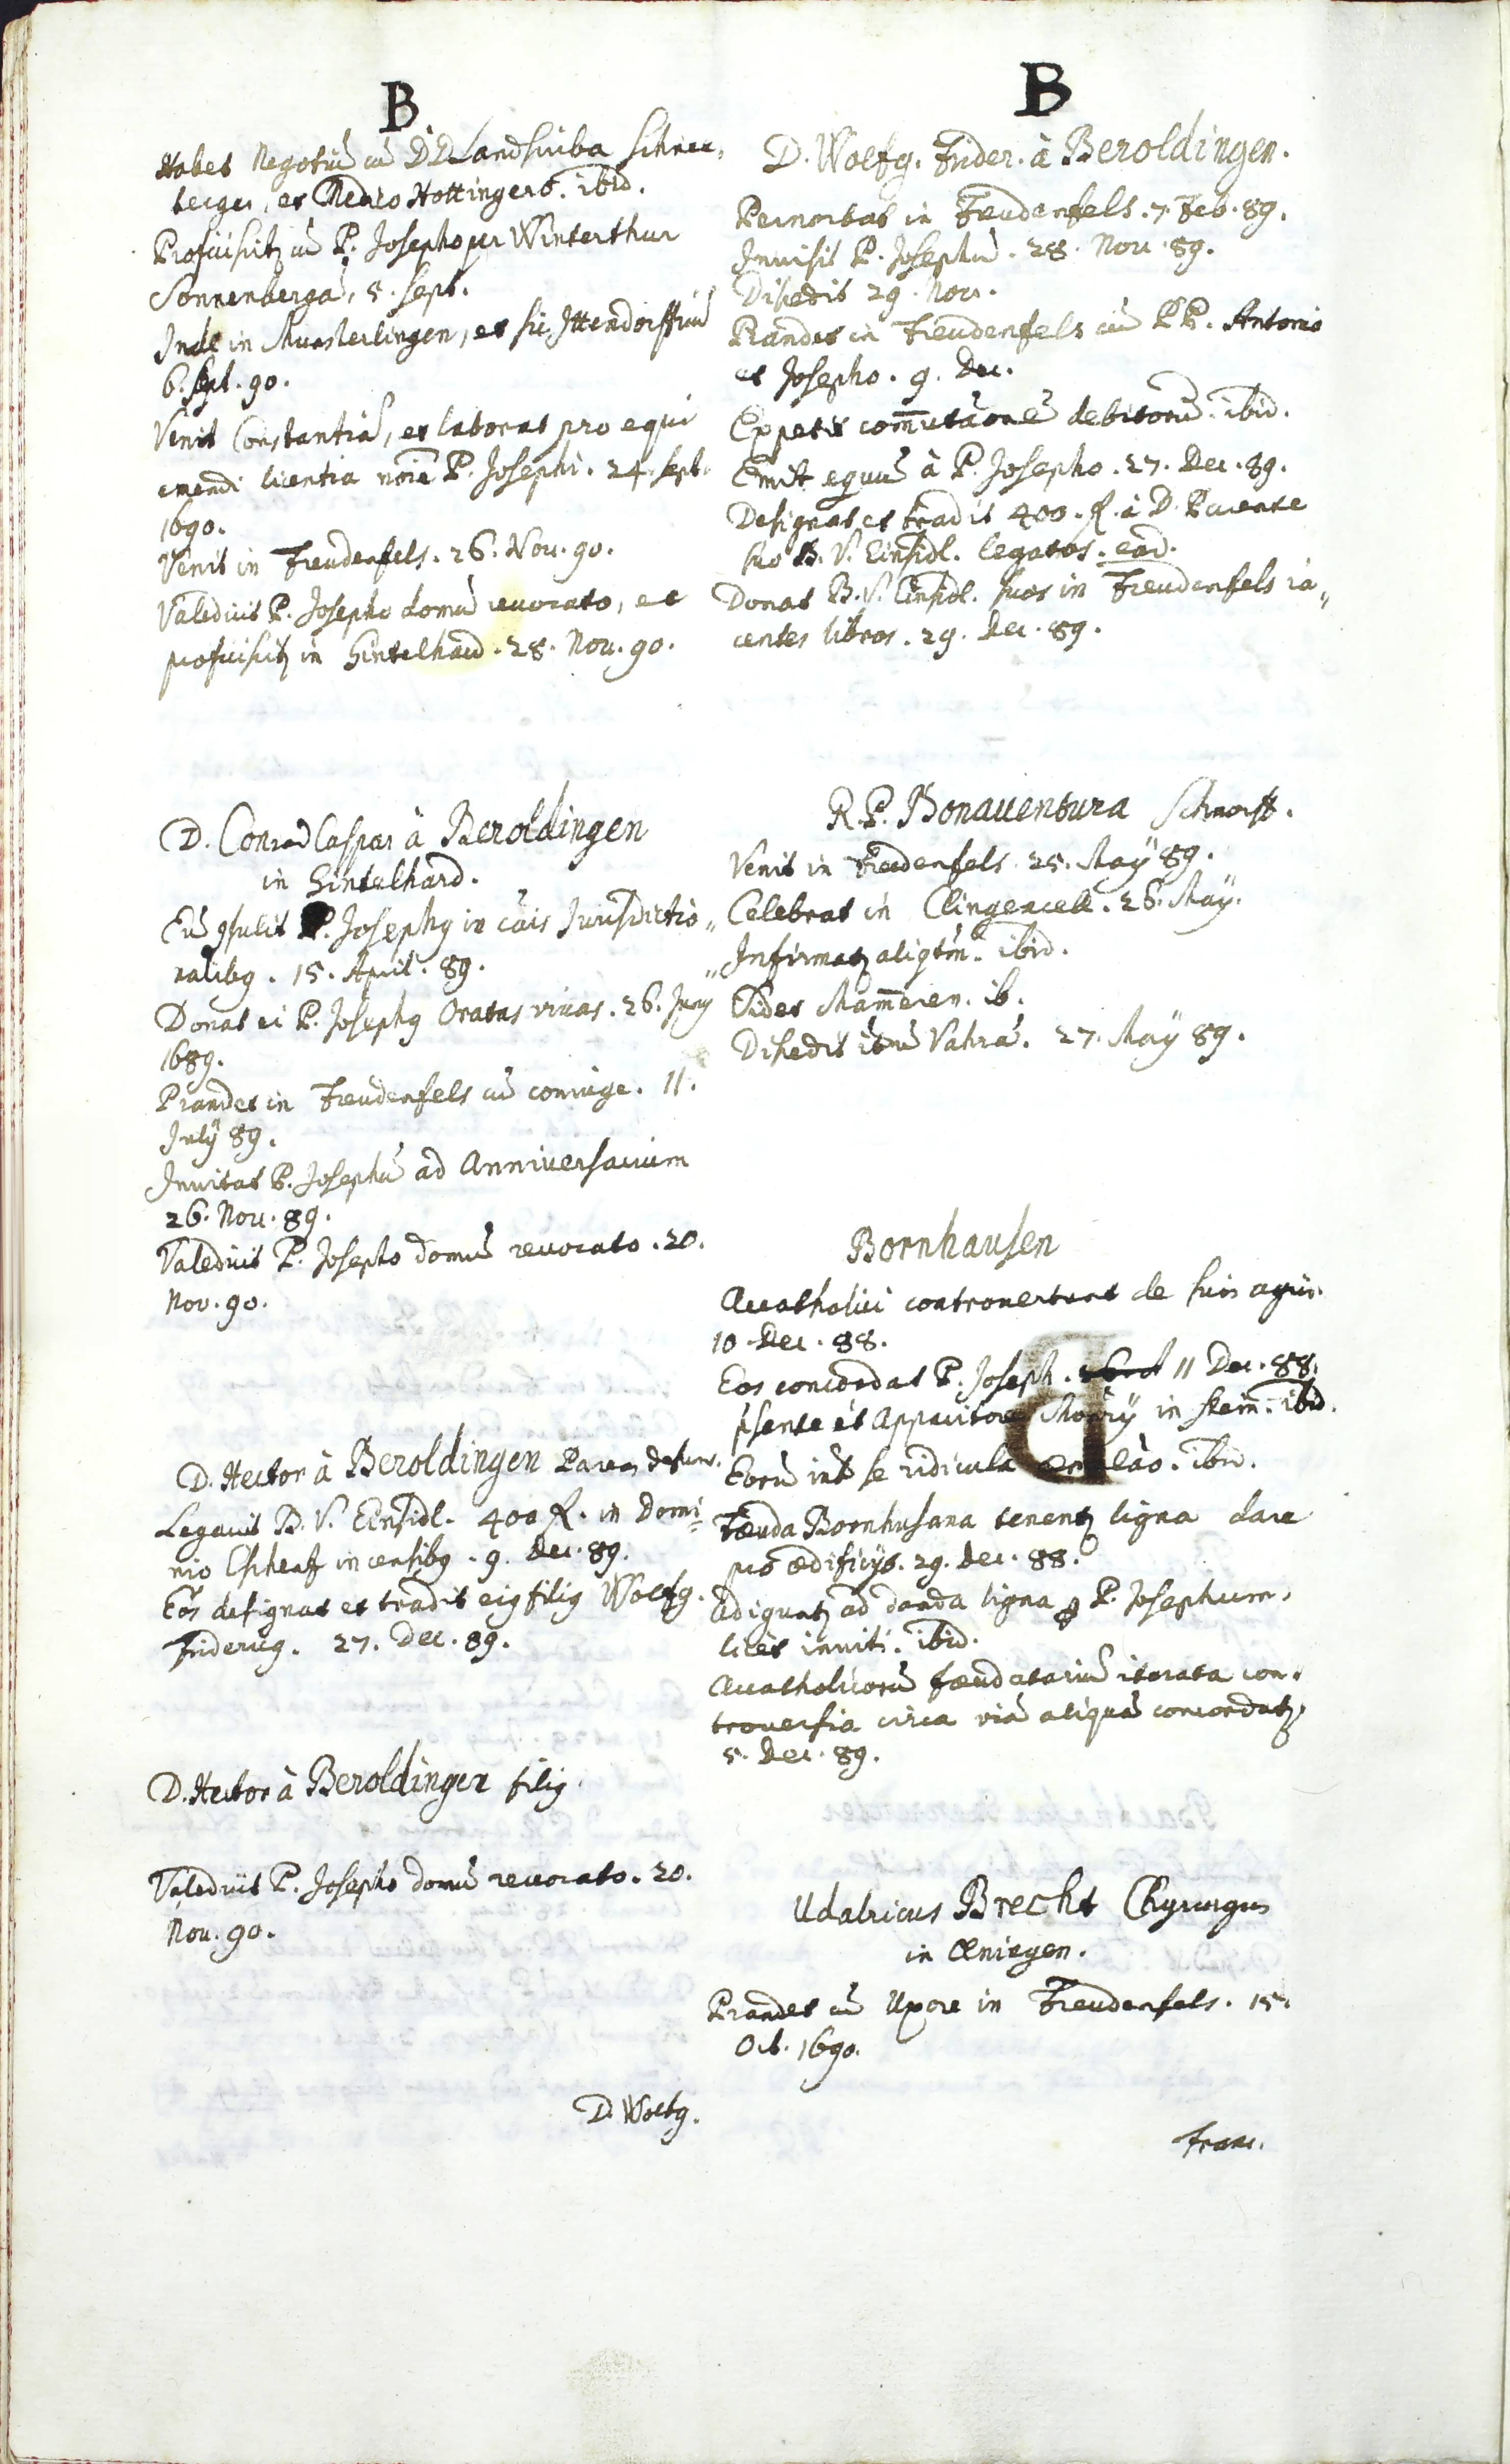 B
Habet Negotiū cū DD Landscriba Schnee„
berger, et Medico Hottingero. ibid.
Proficiscitʒ cū P. Josepho per Winterthur
Sonnenbergā, 5. Sept.
Inde in Munsterlingen, et sic Ittendorffium
6. Sept. 90.
Venit Constantiā, et laborat pro equi
emendi licentia nōie P. Josephi. 24. Sept.
1690.
Venit in Freudenfels. 26. Nov. 90.
Valedicit P. Josepho domū revocato, et
proficiscitʒ in Gintelhard. 28. Nov. 90.
D. Conrad Caspar à Beroldingen
in Gintelhard.
Eū 9sulit P. Joseph9 in cāis Jurisdictio„
nalib9. 15. April. 89.
Donat ei P. Joseph9 vivas. 26. Juny
1689.
Prandet in Freudenfels cū coniuge. 11.
July 89.
Invitat P. Josephū ad Anniversarium
26. Nov. 89.
Valedicit P. Josepho domū revocato. 20.
Nov. 90.
D. Hector à Beroldingen Parens defunc.
Legavit B. V. Einsidl. 400 fl. in Domi=
nio Eschenz in censib9. 9. Dec. 89.
Eos designat et tradit ei9 fili9 Wolfg.
Frideric9. 27. Dec. 89.
D. Hector à Beroldingen fili9.
Valedicit P. Josepho domū revocato. 20.
Nov. 90.
D. Wolfg.
B
D. Wolfg. Frider. à Beroldingen.
Pernoctat in Freudenfels. 7. Feb. 89.
Invisit P. Josephū. 28. Nov. 89.
Discedit 29. Nov.
Prandet in Freudenfels cū PP. Antonio
et Josepho. 9. Dec.
Expetit com̄utāonē debitorū. ibid.
Emit equū à P. Josepho. 27. Dec. 89.
Designat et tradit 400. fl. à D. Parente
suo B. V. Einsidl. legatos. eād.
Donat B. V. Einsidl. suos in Freudenfels ia„
centes libros. 29. Dec. 89.
R. P. Bonaventura Schnorff.
Venit in Freudenfels. 25. May 89.
Celebrat in Clingencell. 26. May.
Infirmatʒ aliqtm̄. ibid.
Videt Mam̄eren. ib.
Discedit itm̄ Fahrā. 27. May 89.
Bornhausen
Acatholici controvertunt de suis agris.
10. Dec. 88.
Eos concordat P. Joseph. 11 Dec. 88.
p̄sente et Apparitore in Stein. ibid.
Eorū int se ridicula ibid.
Fæuda Bornhusana tenentʒ ligna dare
pro ædificijs. 29. Dec. 88.
Adiguntʒ ad danda ligna ꝑ P. Josephum,
licet inviti. ibid.
Acatholicorū fæudatariū iterata con„
troversia circa viā aliquā concordatʒ.
5. Dec. 89.
Udalricus Brecht Chyrurgus
in Œningen.
Prandet cū Uxore in Freudenfels. 15.
Oct. 1690.
Franc.